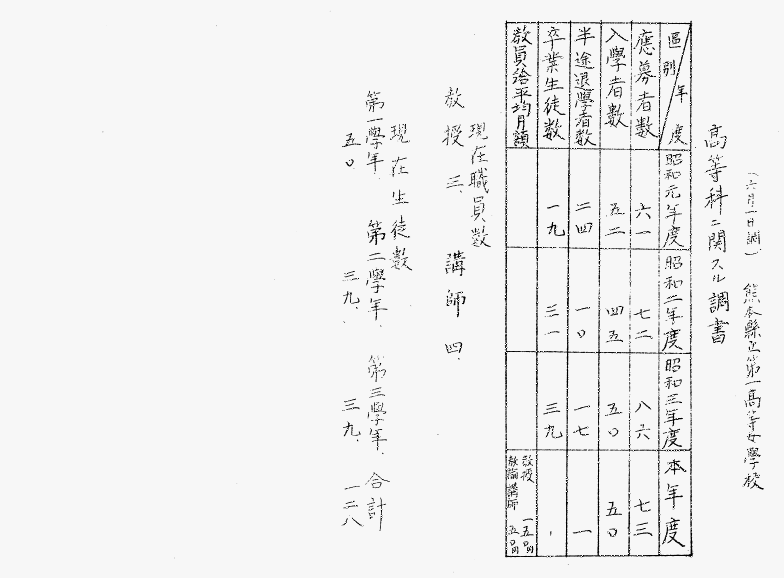 (六月一日調) 熊本縣立第一高等女學校
高等科ニ関スル調書
區別/年度 昭和元年度 昭和二年度 昭和三年度 本年度
應募者數 六一 七二 八六 七三
入學者數 五二 四五 五〇 五〇
半途退學者數 二四 一〇 一七 一
卒業生徒數 一九 三一 三九 、
教員給平均月額 教授 一五〇円
教諭講師 五〇円
現在職員數
教授 三、 講師 四、
現在生徒數
第一學年、 第二學年、 第三學年、 合計
五〇、 三九、 三九、 一二八